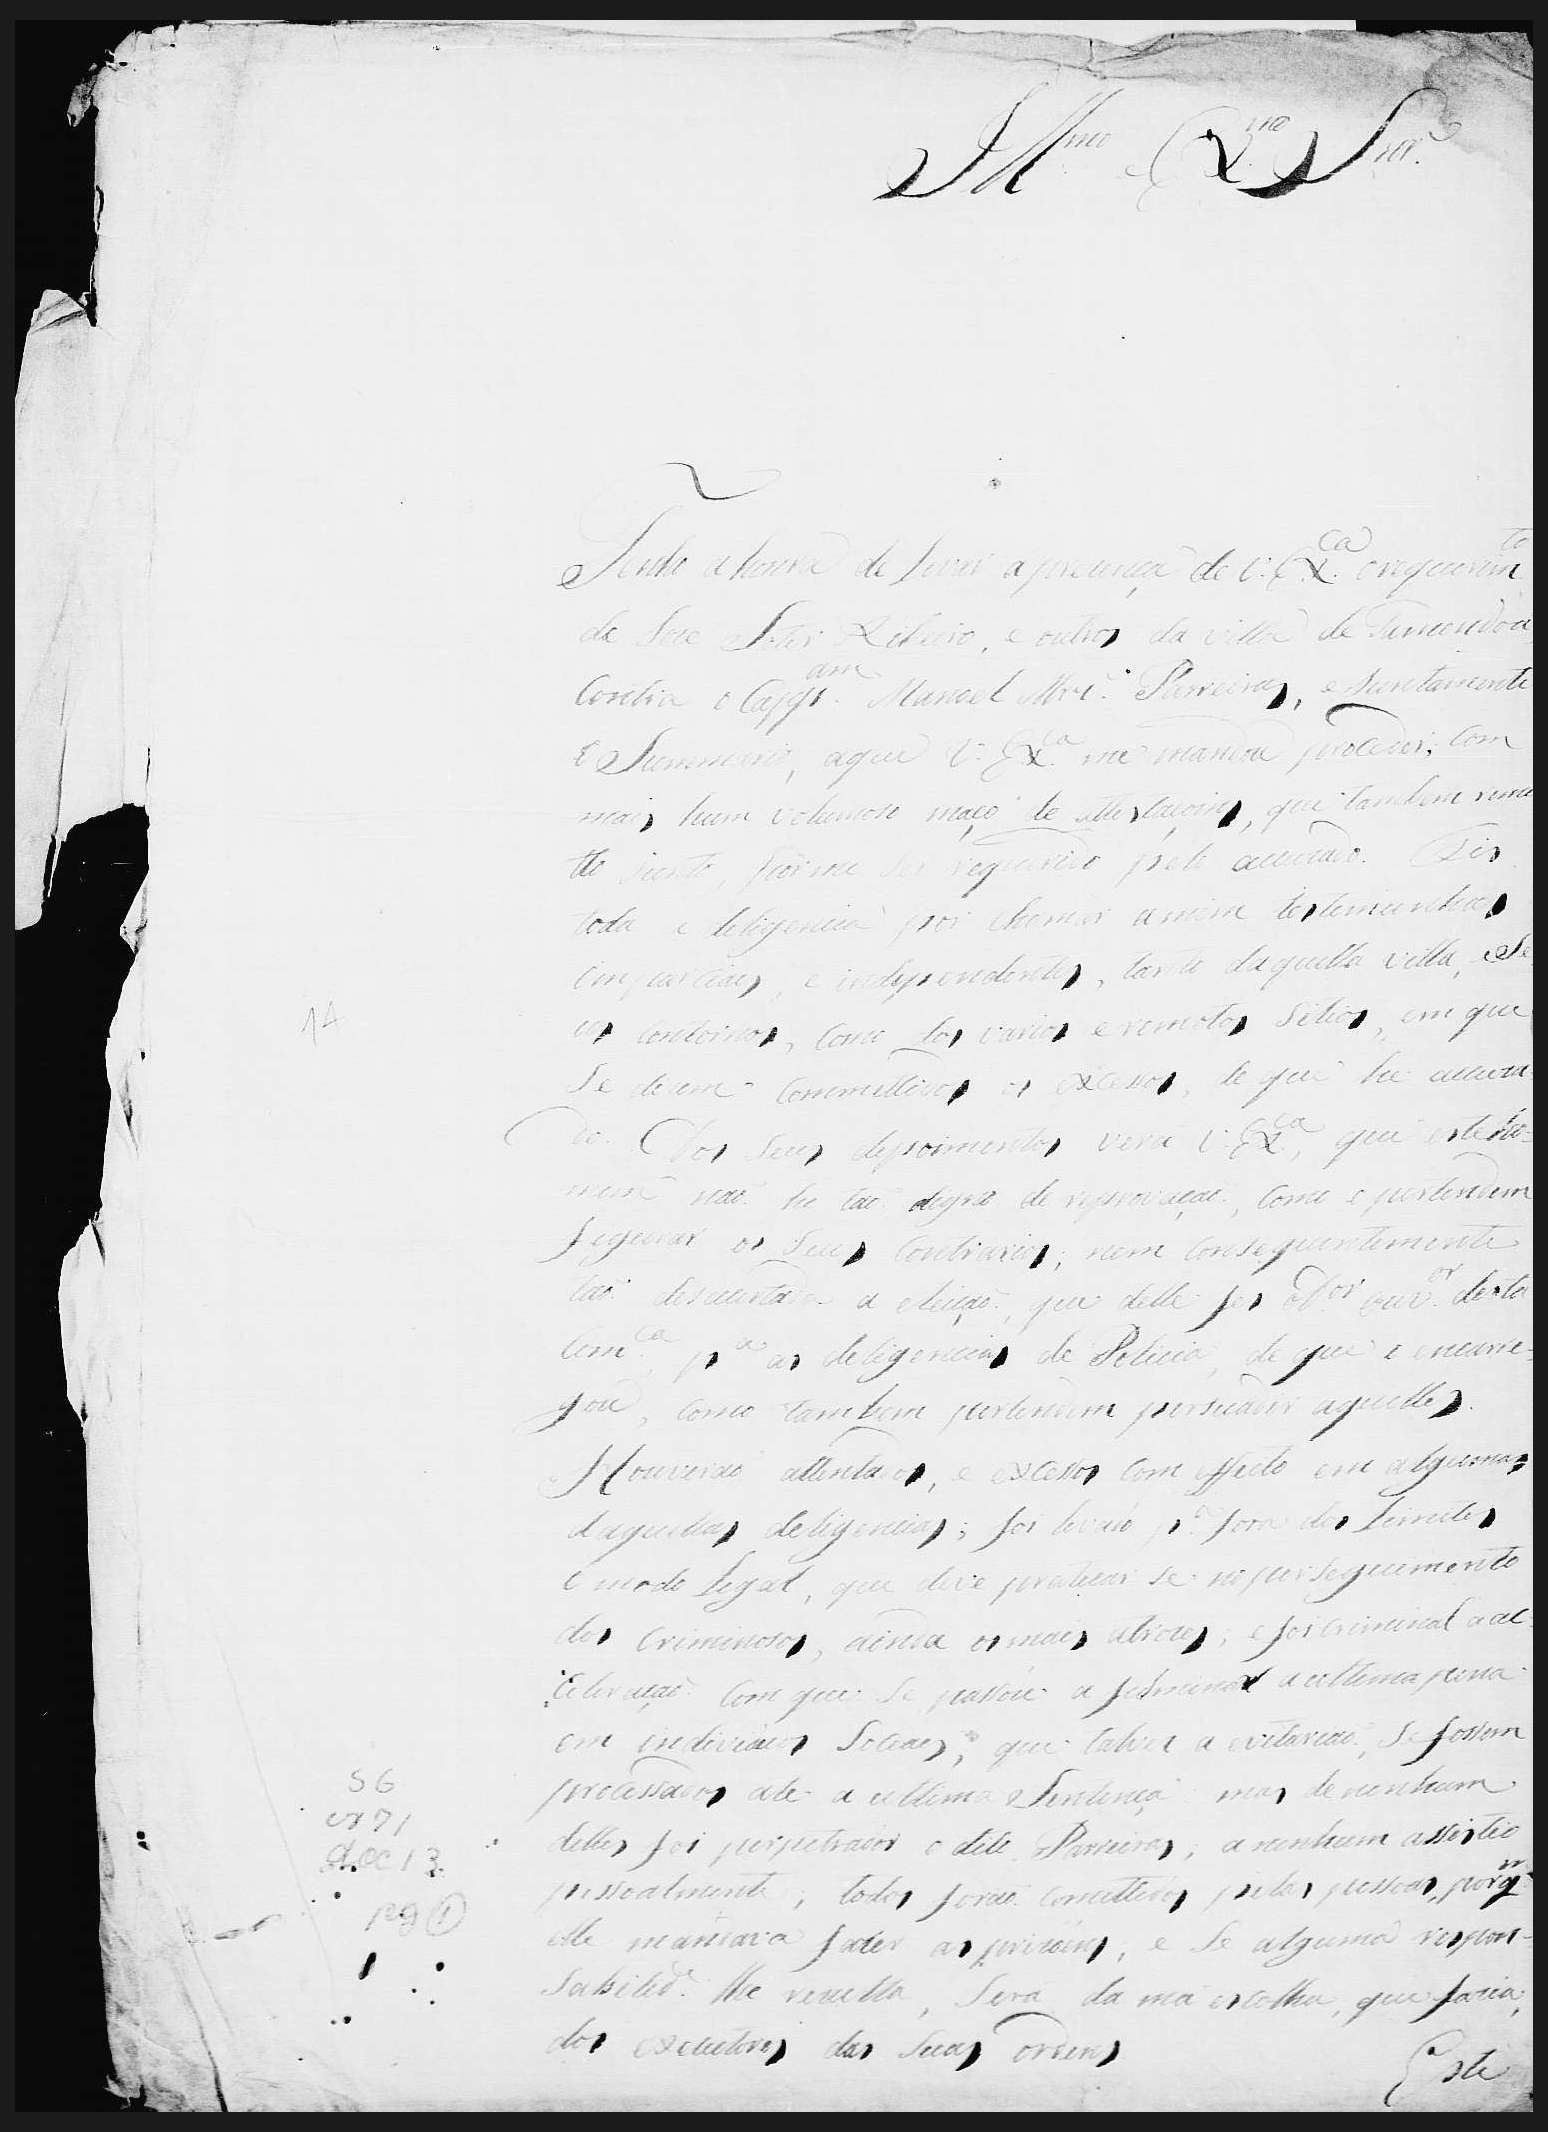 Ill.mo Ex.mo Snr.
Tenho a honra de levar a prezença de V. Ex.ca o requerim.to
de Jose Ribeiro, e outros da villa de Tamanduá
Contra o Cap.am Manoel Parreiras, e juntamente
o Summario, a que V. Ex.ca me mandou proceder, com
mais hum volumoso maço de attestaçoens, que tambem reme
tto junto, por me ser requerido pelo accuzado. Fis
toda a deligencia por chamar a mim testemunhas
imparciais, e independentes, tanto daquella villa, e Se
us contornos, como dos varios e remotos Sitios, em que
Se dizem committidos os excessos, de que he accuza-
do. Dos Seus depoimentos verá V. Ex.ca, que este ho-
mem não he tão digno de reprovação, como o pertendem
figurar os Seus Contrarios; nem conseguintemente
tão desacertada a eleição, que delle fes o D.or Ouv.or desta
Com.ca p.a as deligencias de Policia, de que o encarre-
gou, como tambem pertendem persuadir aquelles.
Houverão attentados, e excessos com effeito em algumas
daquellas deligencias; foi levado p.a fora dos Limites
o modo Legal, que deve praticar se no perseguimento
dos Criminosos, ainda os mais atrozes; e foi criminal a ac-
celeração com que Se passou a fulminar a ultima pena
em individuos Sociaes, que talvez a evitarião, Se fossem
processados ate a ultima Sentença: mas de nenhum
delles foi perpetrador o dito Parreiras; a nenhum assistio
pessoalmente; todos forão comettidos pelas pessoas, por q.m
elle mandara fazer as prizoens; e Se alguma respon-
Sabilid.e lhe rezulta, Sera da má escolha, que fazia,
dos executores das Suas ordens
Este
14
56
cx 71
doc 13
pg 1